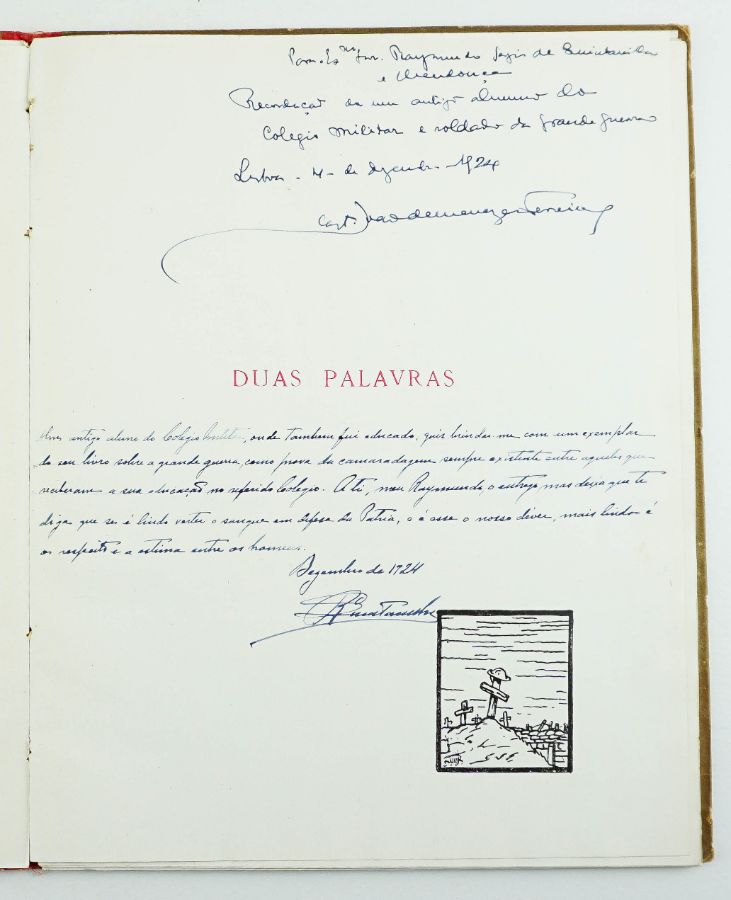 Para o Ex.mo Snr. Raymundo de Quintanilha
e Mendonça
Recordação de um antigo alumno do
Colegio Militar e soldado da grande guerra
Lisboa - 4 - de dezembro - 1924
Capt. João de Menezes Ferreira
DUAS PALAVRAS
Um antigo aluno do Colegio Militar, onde tambem fui educado, quis brindar-me com um exemplar
do seu livro sobre a grande guerra, como prova da camaradagem sempre existente entre aqueles que
receberam a sua educação no referido Colegio. A ti, meu Raymundo, o entrego mas deixa que te
diga que se é lindo verter o sangue em defesa da Patria, e é esse o nosso dever, mais lindo é
o respeito e a estima entre os homens.
Dezembro de 1924